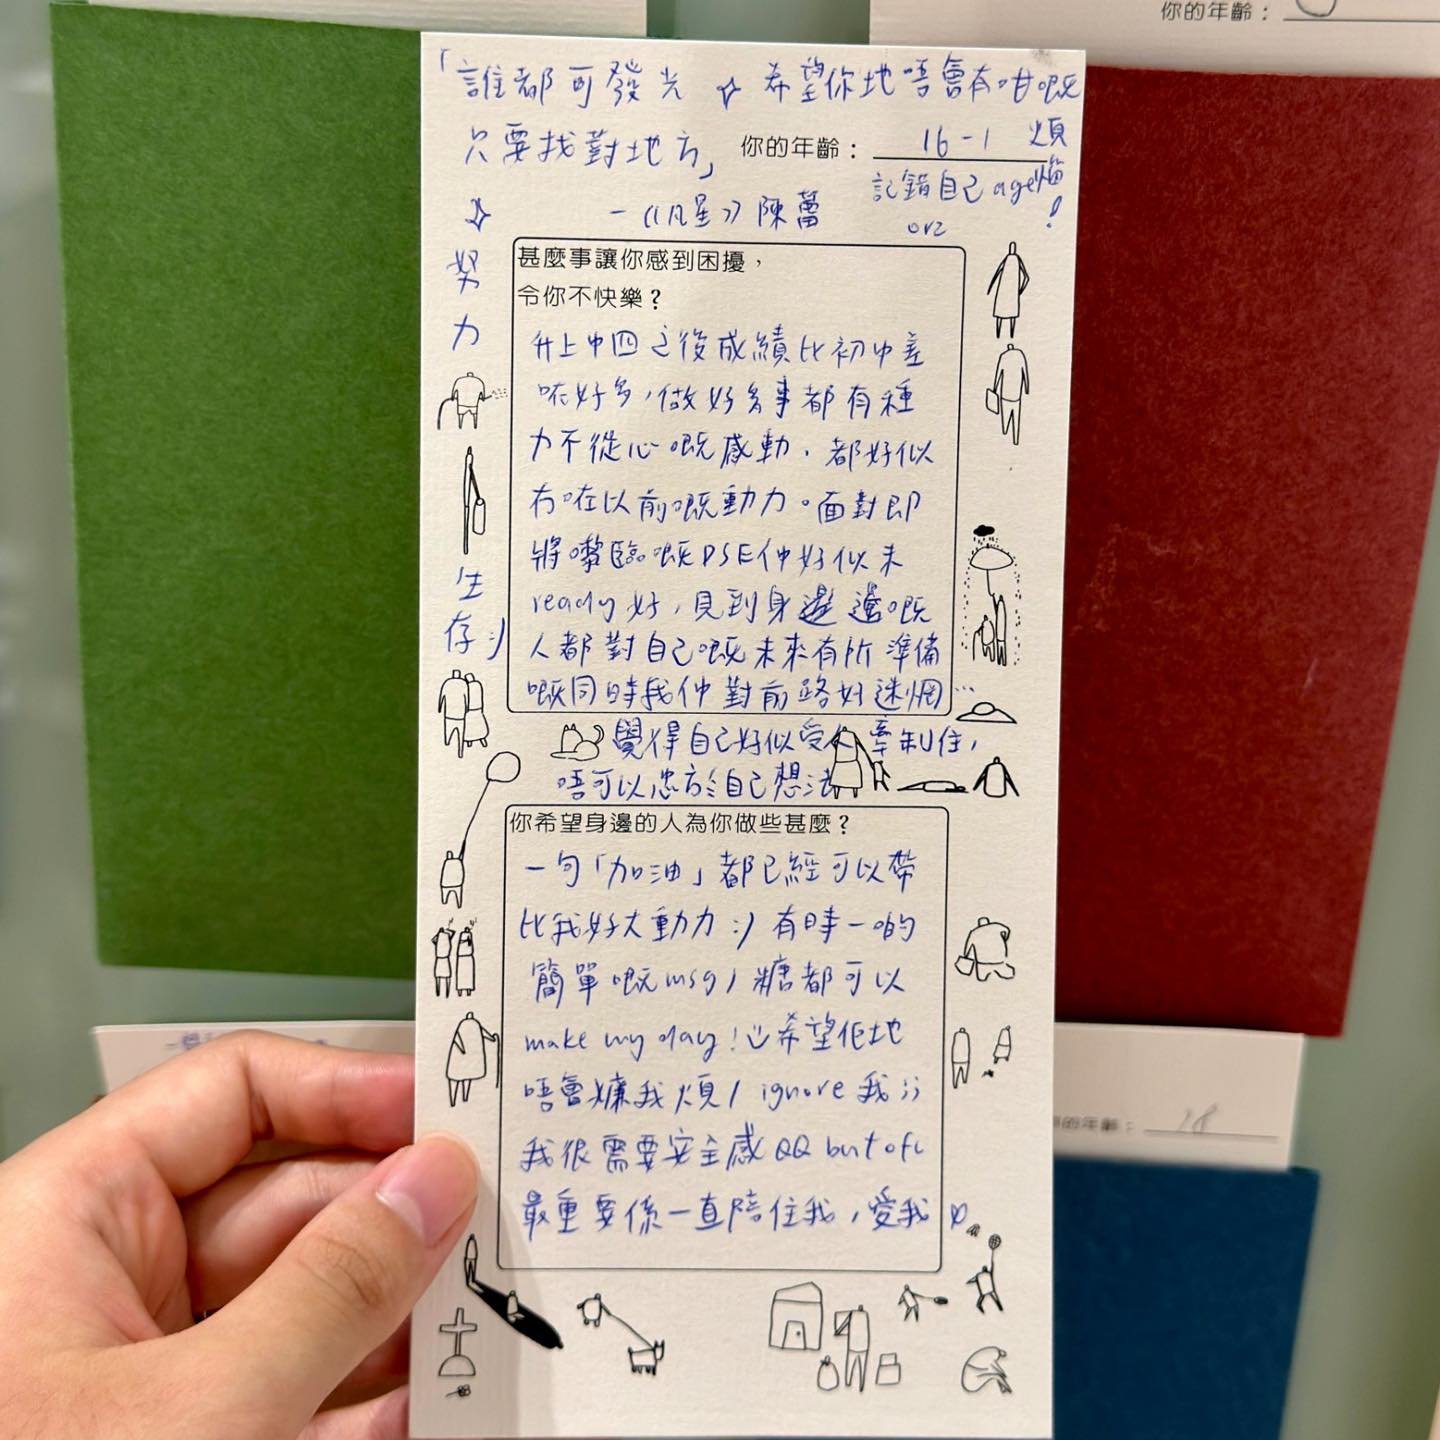 你的年齡：
「誰都可發光 ☆ 希望你地唔會有咁嘅
只要找對地方」 你的年齡： 16-1 煩
記錯自己age 惱！
☆ —《凡星》陳蕾 orz
努
力
生
存:)
甚麼事讓你感到困擾，
令你不快樂？
升上中四之後成績比初中差
咗好多，做好多事都有種
力不從心嘅感動，都好似
冇咗以前嘅動力。面對即
將嚟臨嘅DSE仲好似未
ready好，見到身邊嘅
人都對自己嘅未來有所準備
嘅同時我仲對前路好迷惘…
覺得自己好似受人牽制住，
唔可以忠於自己想法
你希望身邊的人為你做些甚麼？
一句「加油」都已經可以帶
比我好大動力:) 有時一啲
簡單嘅msg/糖都可以
make my day! 希望佢地
唔會嫌我煩/ignore我;;
我很需要安全感QQ but ofc
最重要係一直陪住我，愛我
你的年齡： 18